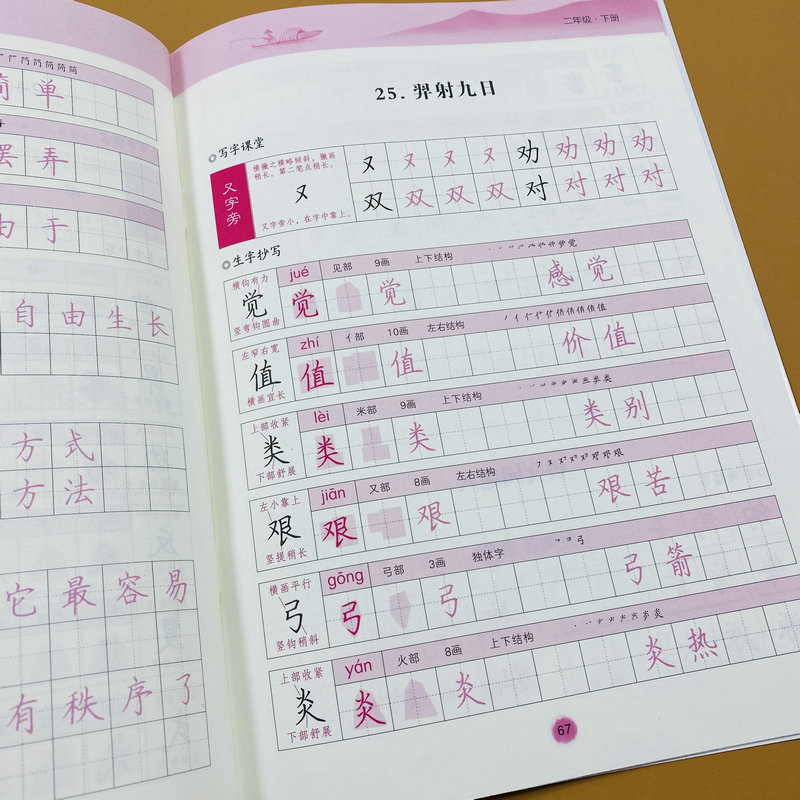 简单
罢弄
由于
自由生长
方式
方法
它最容易
有秩序了
二年级·下册
25. 羿射九日
◎写字课堂
又字旁
横撇之横略倾斜，撇画稍长。第二笔点稍长。
又
又字旁小，在字中靠上。
又 又 又 又 劝 劝 劝 劝
双 双 双 双 对 对 对 对
◎生字抄写
横钩有力 jué 见部 9画 上下结构
觉 觉 觉 感觉
竖弯钩圆曲
左窄右宽 zhí 亻部 10画 左右结构
值 值 值 价值
横画宜长
上部收紧 lèi 米部 9画 上下结构
类 类 类 类别
下部舒展
左小靠上 jiān 又部 8画 左右结构
艰 艰 艰 艰苦
竖提稍长
横画平行 gōng 弓部 3画 独体字
弓 弓 弓 弓箭
竖钩稍斜
上部收紧 yán 火部 8画 上下结构
炎 炎 炎 炎热
下部舒展
67